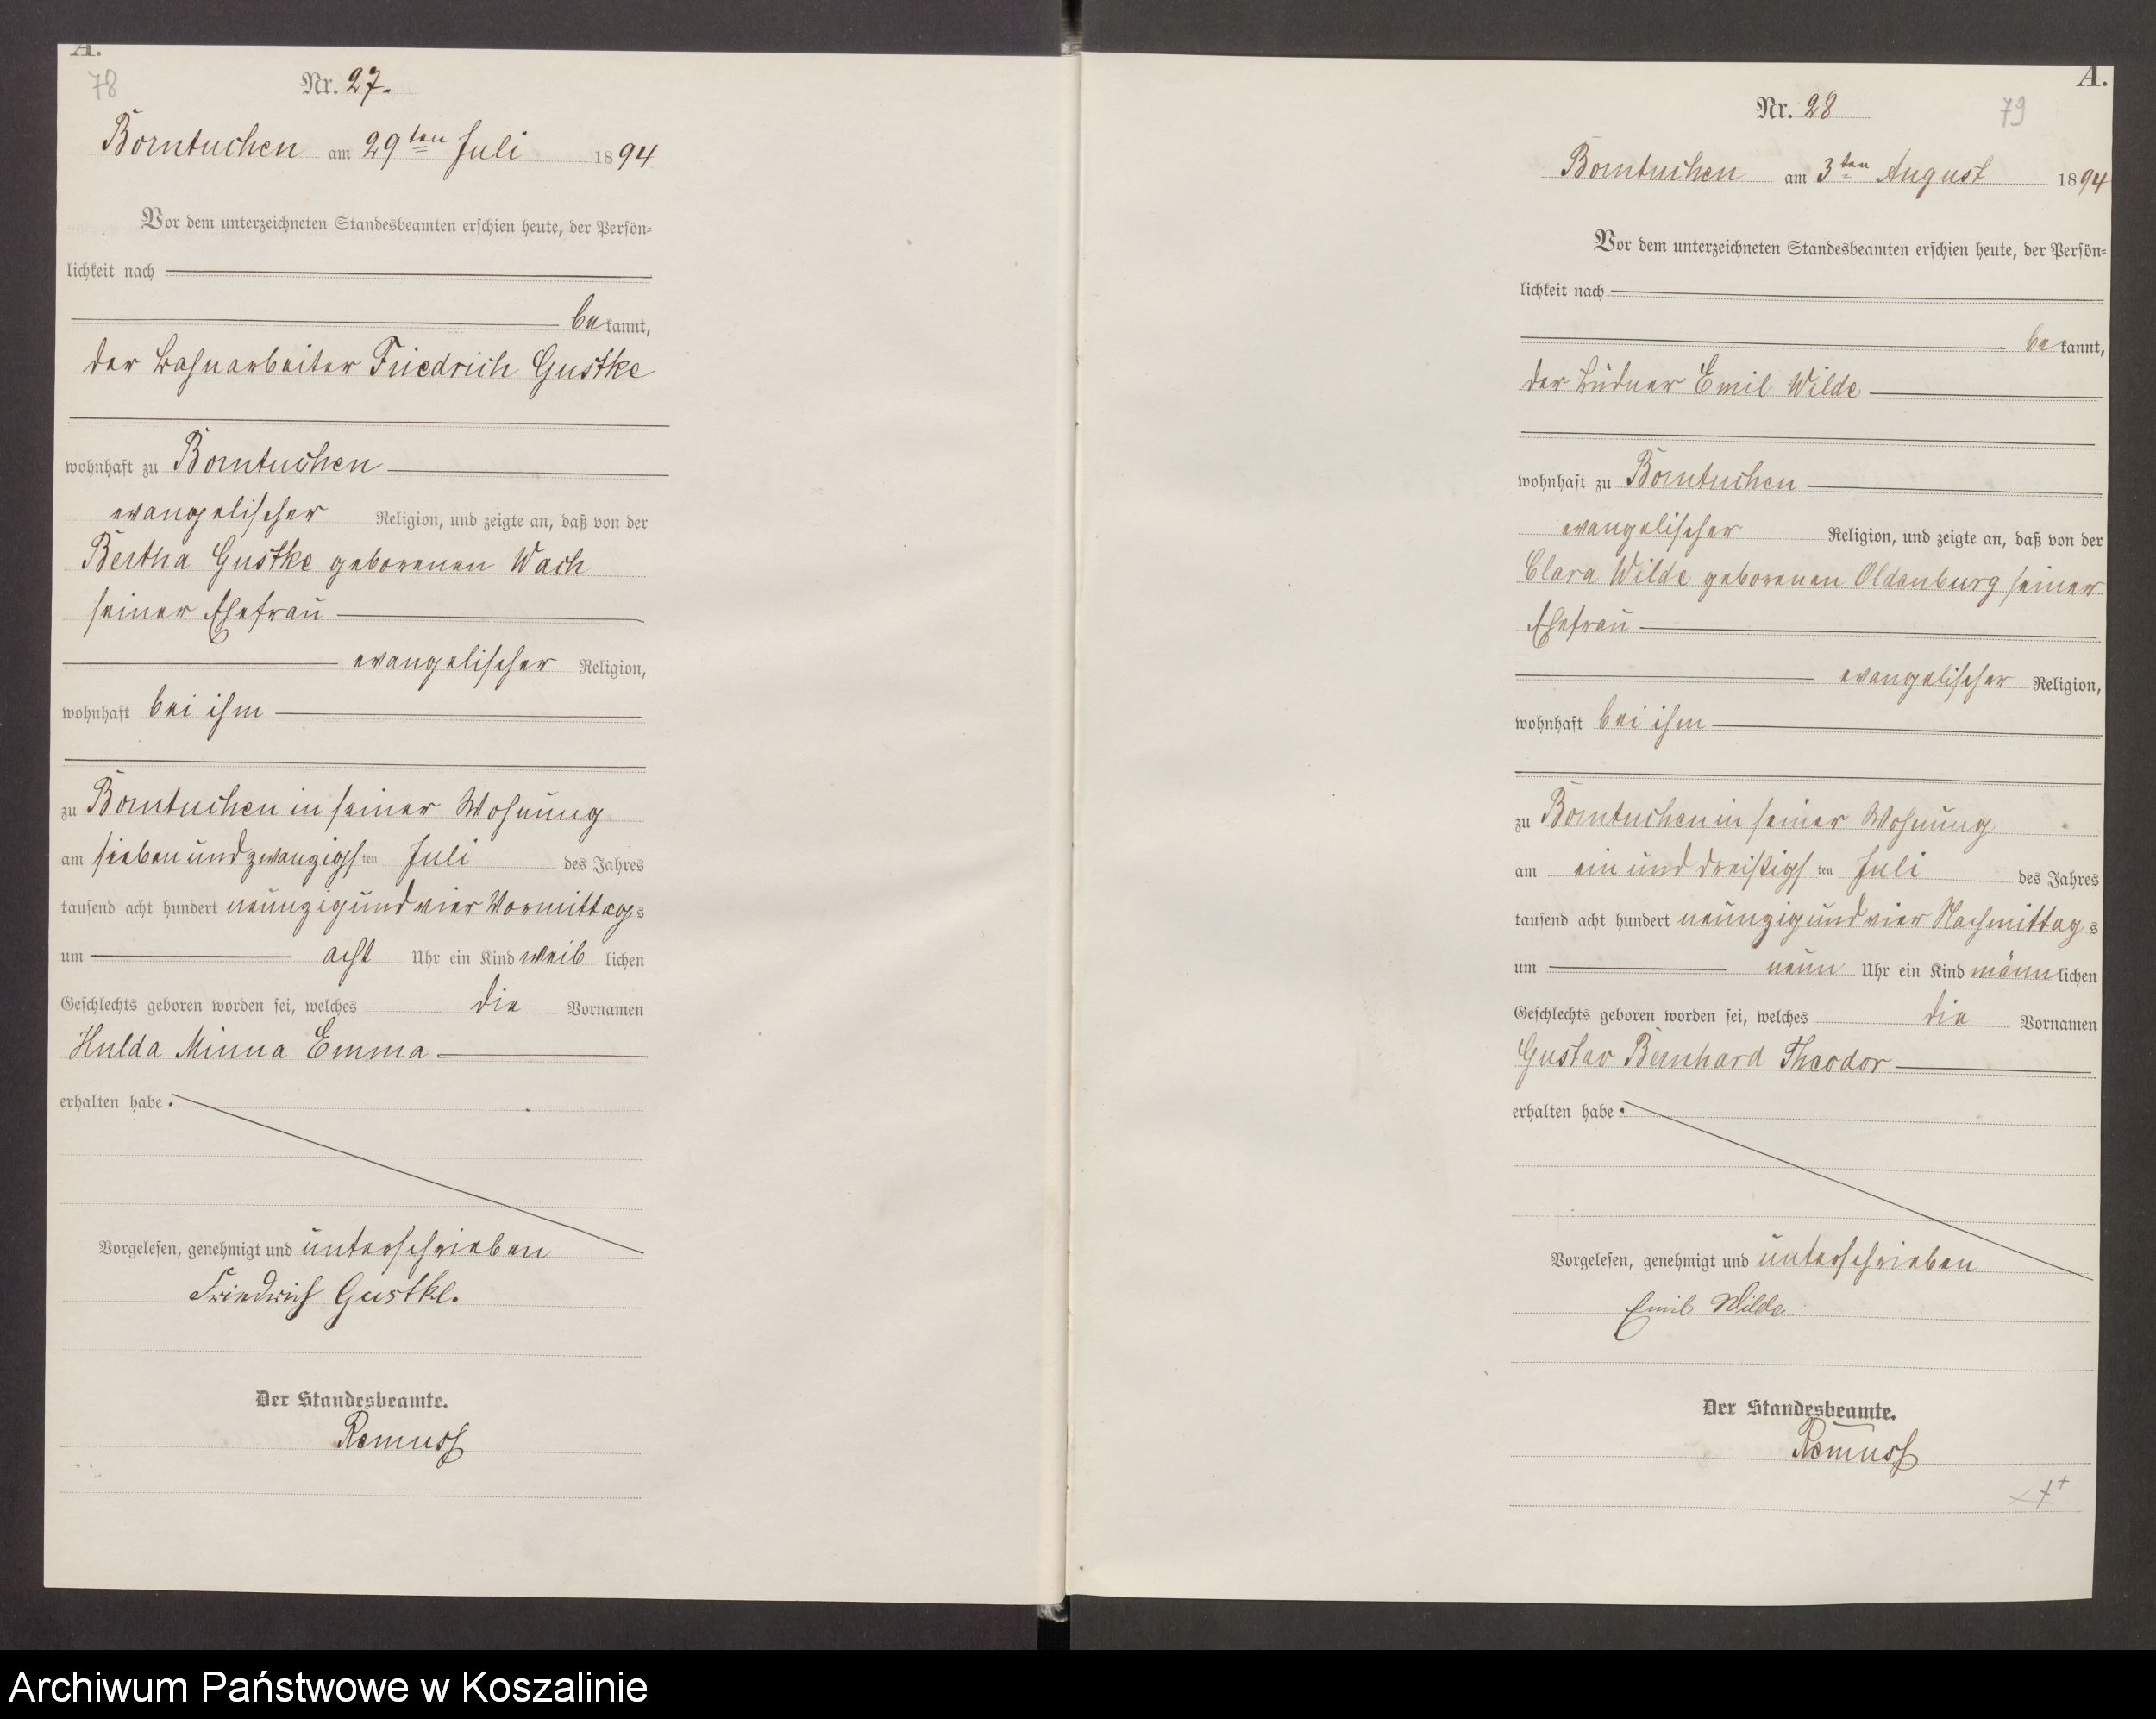 A.
78
Nr. 27.
Borntuchen am 29ten Juli 1894
Vor dem unterzeichneten Standesbeamten erschien heute, der Persön-
lichkeit nach
bekannt,
der Bahnarbeiter Friedrich Gustke
wohnhaft zu Borntuchen
evangelischer Religion, und zeigte an, daß von der
Bertha Gustke geborenen Wach
seiner Ehefrau
evangelischer Religion,
wohnhaft bei ihm
zu Borntuchen in seiner Wohnung
am siebenundzwanzigsten Juli des Jahres
tausend acht hundert neunzigundvier Vormittags
um acht Uhr ein Kind weiblichen
Geschlechts geboren worden sei, welches die Vornamen
Hulda Minna Emma
erhalten habe.
Vorgelesen, genehmigt und unterschrieben
Friedrich Gustke.
Der Standesbeamte.
Remuss
A.
79
Nr. 28
Borntuchen am 3ten August 1894
Vor dem unterzeichneten Standesbeamten erschien heute, der Persön-
lichkeit nach
bekannt,
der Büdner Emil Wilde
wohnhaft zu Borntuchen
evangelischer Religion, und zeigte an, daß von der
Clara Wilde geborenen Oldenburg seiner
Ehefrau
evangelischer Religion,
wohnhaft bei ihm
zu Borntuchen in seiner Wohnung
am ein und dreißigsten Juli des Jahres
tausend acht hundert neunzigundvier Nachmittags
um neun Uhr ein Kind männlichen
Geschlechts geboren worden sei, welches die Vornamen
Gustav Bernhard Theodor
erhalten habe.
Vorgelesen, genehmigt und unterschrieben
Emil Wilde
Der Standesbeamte.
Remuss
Archiwum Państwowe w Koszalinie